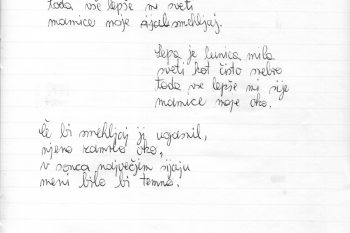 toda vse lepše mi sveti
mamice moje smehljaj.
Lepa je lunica mila
sveti kot čisto srebro
toda vse lepše mi sije
mamice moje oko.
Če bi smehljaj ji ugasnil,
njeno zamrlo oko,
v sonca največjem sijaju
meni bilo bi temno.